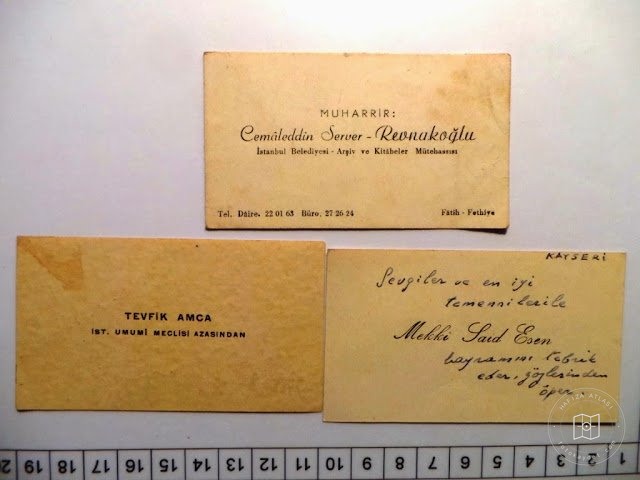 MUHARRİR:
Cemâleddin Server - Revnakoğlu
İstanbul Belediyesi - Arşiv ve Kitâbeler Mütehassısı
Tel. Dâire. 22 01 63 Büro. 27 26 24 Fâtih - Fethiye
TEVFİK AMCA
İST. UMUMİ MECLİSİ AZASINDAN
KAYSERİ
Sevgiler ve en iyi
temennilerile
Mekki Said Esen
bayramını tebrik
eder, gözlerinden
öper.
HAFIZA ATLASI
20 19 18 17 16 15 14 13 12 11 10 9 8 7 6 5 4 3 2 1